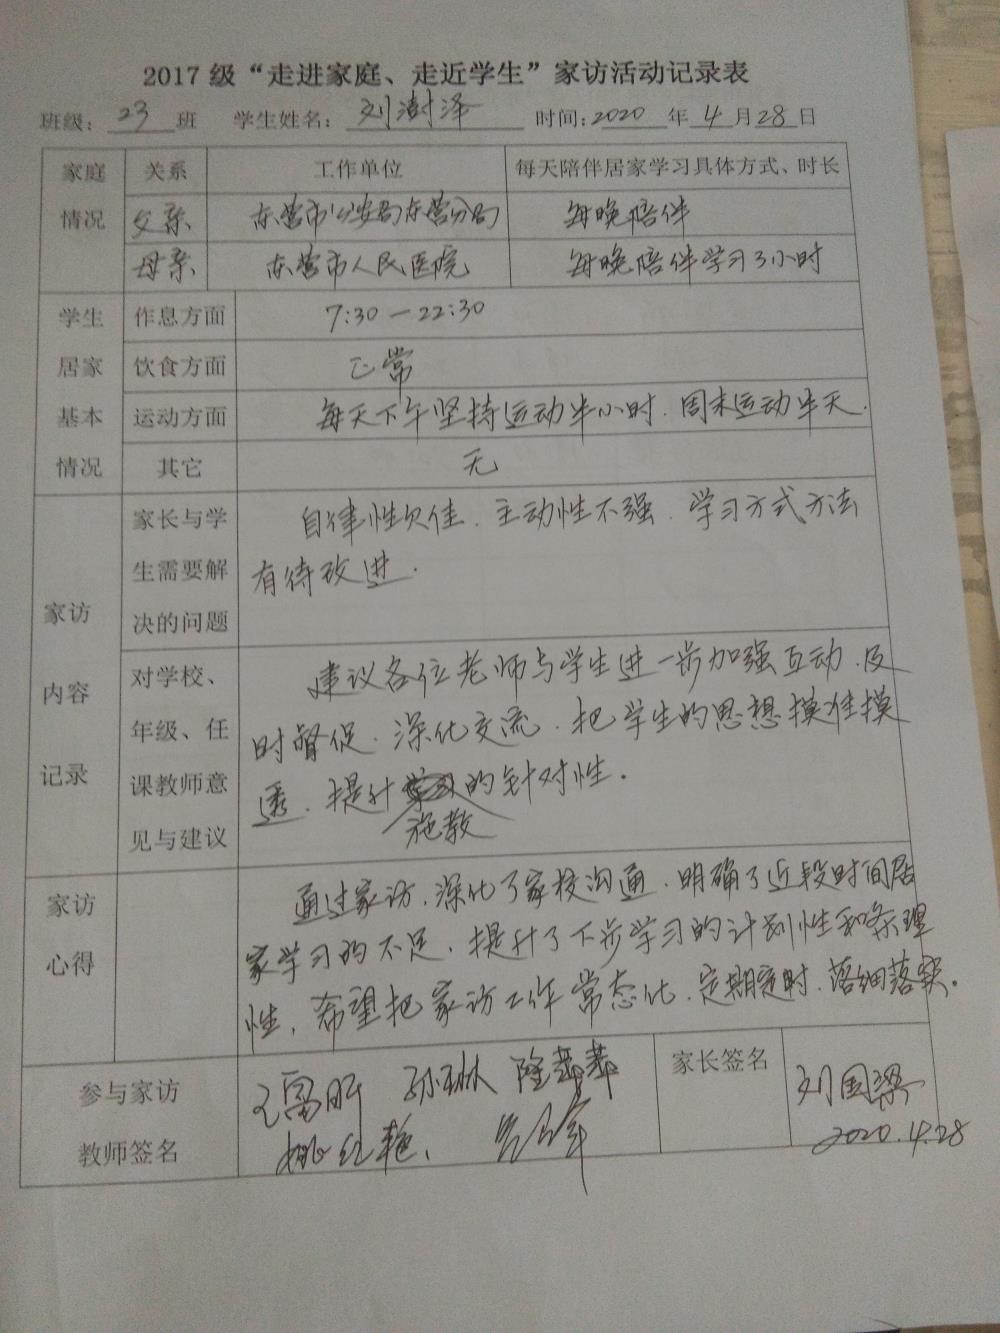 2017级“走进家庭、走近学生”家访活动记录表
班级：23班 学生姓名：刘澍泽 时间：2020年4月28日
家庭情况 关系 工作单位 每天陪伴居家学习具体方式、时长
父亲 东营市公安局东营分局 每晚陪伴
母亲 东营市人民医院 每晚陪伴学习3小时
学生居家基本情况
作息方面 7:30—22:30
饮食方面 正常
运动方面 每天下午坚持运动半小时.周末运动半天.
其它 无
家访内容记录
家长与学
生需要解
决的问题
自律性欠佳.主动性不强.学习方式方法
有待改进.
对学校、
年级、任
课教师意
见与建议
建议各位老师与学生进一步加强互动.及
时督促.深化交流.把学生的思想摸准摸
透.提升施教的针对性。
家访
心得
通过家访,深化了家校沟通.明确了近段时间居
家学习的不足,提升了下步学习的计划性和条理
性,希望把家访工作常态化.定期定时.落细落实。
参与家访
教师签名
孙琳
姚红艳、
家长签名
刘国梁
2020.4.28